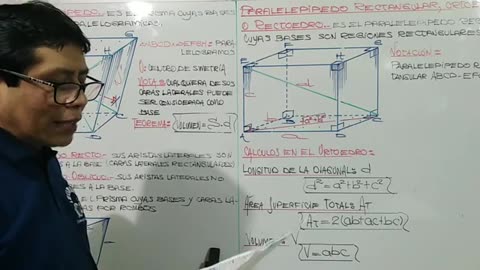 ES EL PRISMA CUYAS BASES
PARALELOGRAMICAS.
ABCD-EFGH: PARA
LELOGRAMOS
O: CENTRO DE SIMETRÍA
NOTA: CUALQUIERA DE SUS
CARAS LATERALES PUEDE
SER CONSIDERADA COMO
BASE
TEOREMA:
VOLUMEN = S.d
RECTO.- SUS ARISTAS LATERALES SON
A LA BASE (CARAS LATERALES RECTANGULARES)
OBLICUO.- SUS ARISTAS LATERALES NO
A LA BASE.
PRISMA CUYAS BASES Y CARAS LA
POR ROMBOS
PARALELEPÍPEDO RECTANGULAR, ORTOE
O RECTOEDRO.- ES EL PARALELEPÍPEDO RE
CUYAS BASES SON REGIONES RECTANGULARES
NOTACIÓN:
PARALELEPÍPEDO R
TANGULAR ABCD-EF
F
d
c
A
a
b
CÁLCULOS EN EL ORTOEDRO:
LONGITUD DE LA DIAGONAL: d
d² = a²+b²+c²
ÁREA SUPERFICIE TOTAL: AT
AT = 2(ab+ac+bc)
VOLUMEN: V
V = abc